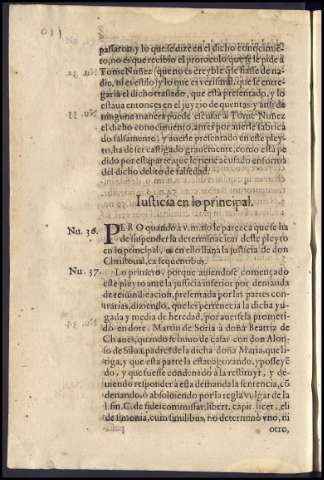 passaron, y lo que se dize en el dicho conocimien-
to, no es que recibio el protocolo que se le pide a
Tome Nuñez (que no es creyble que fiasse de na-
die, ni es estilo) y lo que es verisimil, que se entre-
garia el dicho traslado, que está presentado, y lo
estaua entonces en el juyzio de quentas, y antes de
ninguna manera puede escusar a Tome Nuñez
el dicho conocimiento, antes por auerle fabrica
do falsamente, y auerle presentado en este pley-
to, ha de ser castigado grauemente, como está pe
dido por esta parte, que le tiene acusado en forma
del dicho delito de falsedad.
Iusticia en lo principal.
Nu. 36. PERO quando a v.m. no le parezca que se ha
de suspender la determinacion deste pleyto
en lo principal, aun en el o llana la justicia de don
Christoual, ex sequentibus.
Nu. 37. Lo primero, porque auiendose començado
este pleyto ante la justicia inferior por deman-
da de reiuindicacion, presentada por las partes con-
trarias, diziendo, que les pertenecia la dicha yu-
gada y media de heredad, por auersela prometi-
do en dote Martin de Soria a doña Beatriz de
Chaues, quando se huuo de casar con don Alon-
so de Silua, padres de la dicha doña Maria, que li-
tiga, y que esta parte la estaua gozando, y posseyē
do, y que fuesse condenado a la restituyr, y de-
uiendo responder a esta demanda la sentencia, cō
denando, o absoluiendo por la regla vulgar de la
l. fin. C. de fideicommissar. libert. capit. licet, eli
de simonia, cum similibus, no determinò vno, ni
otro,